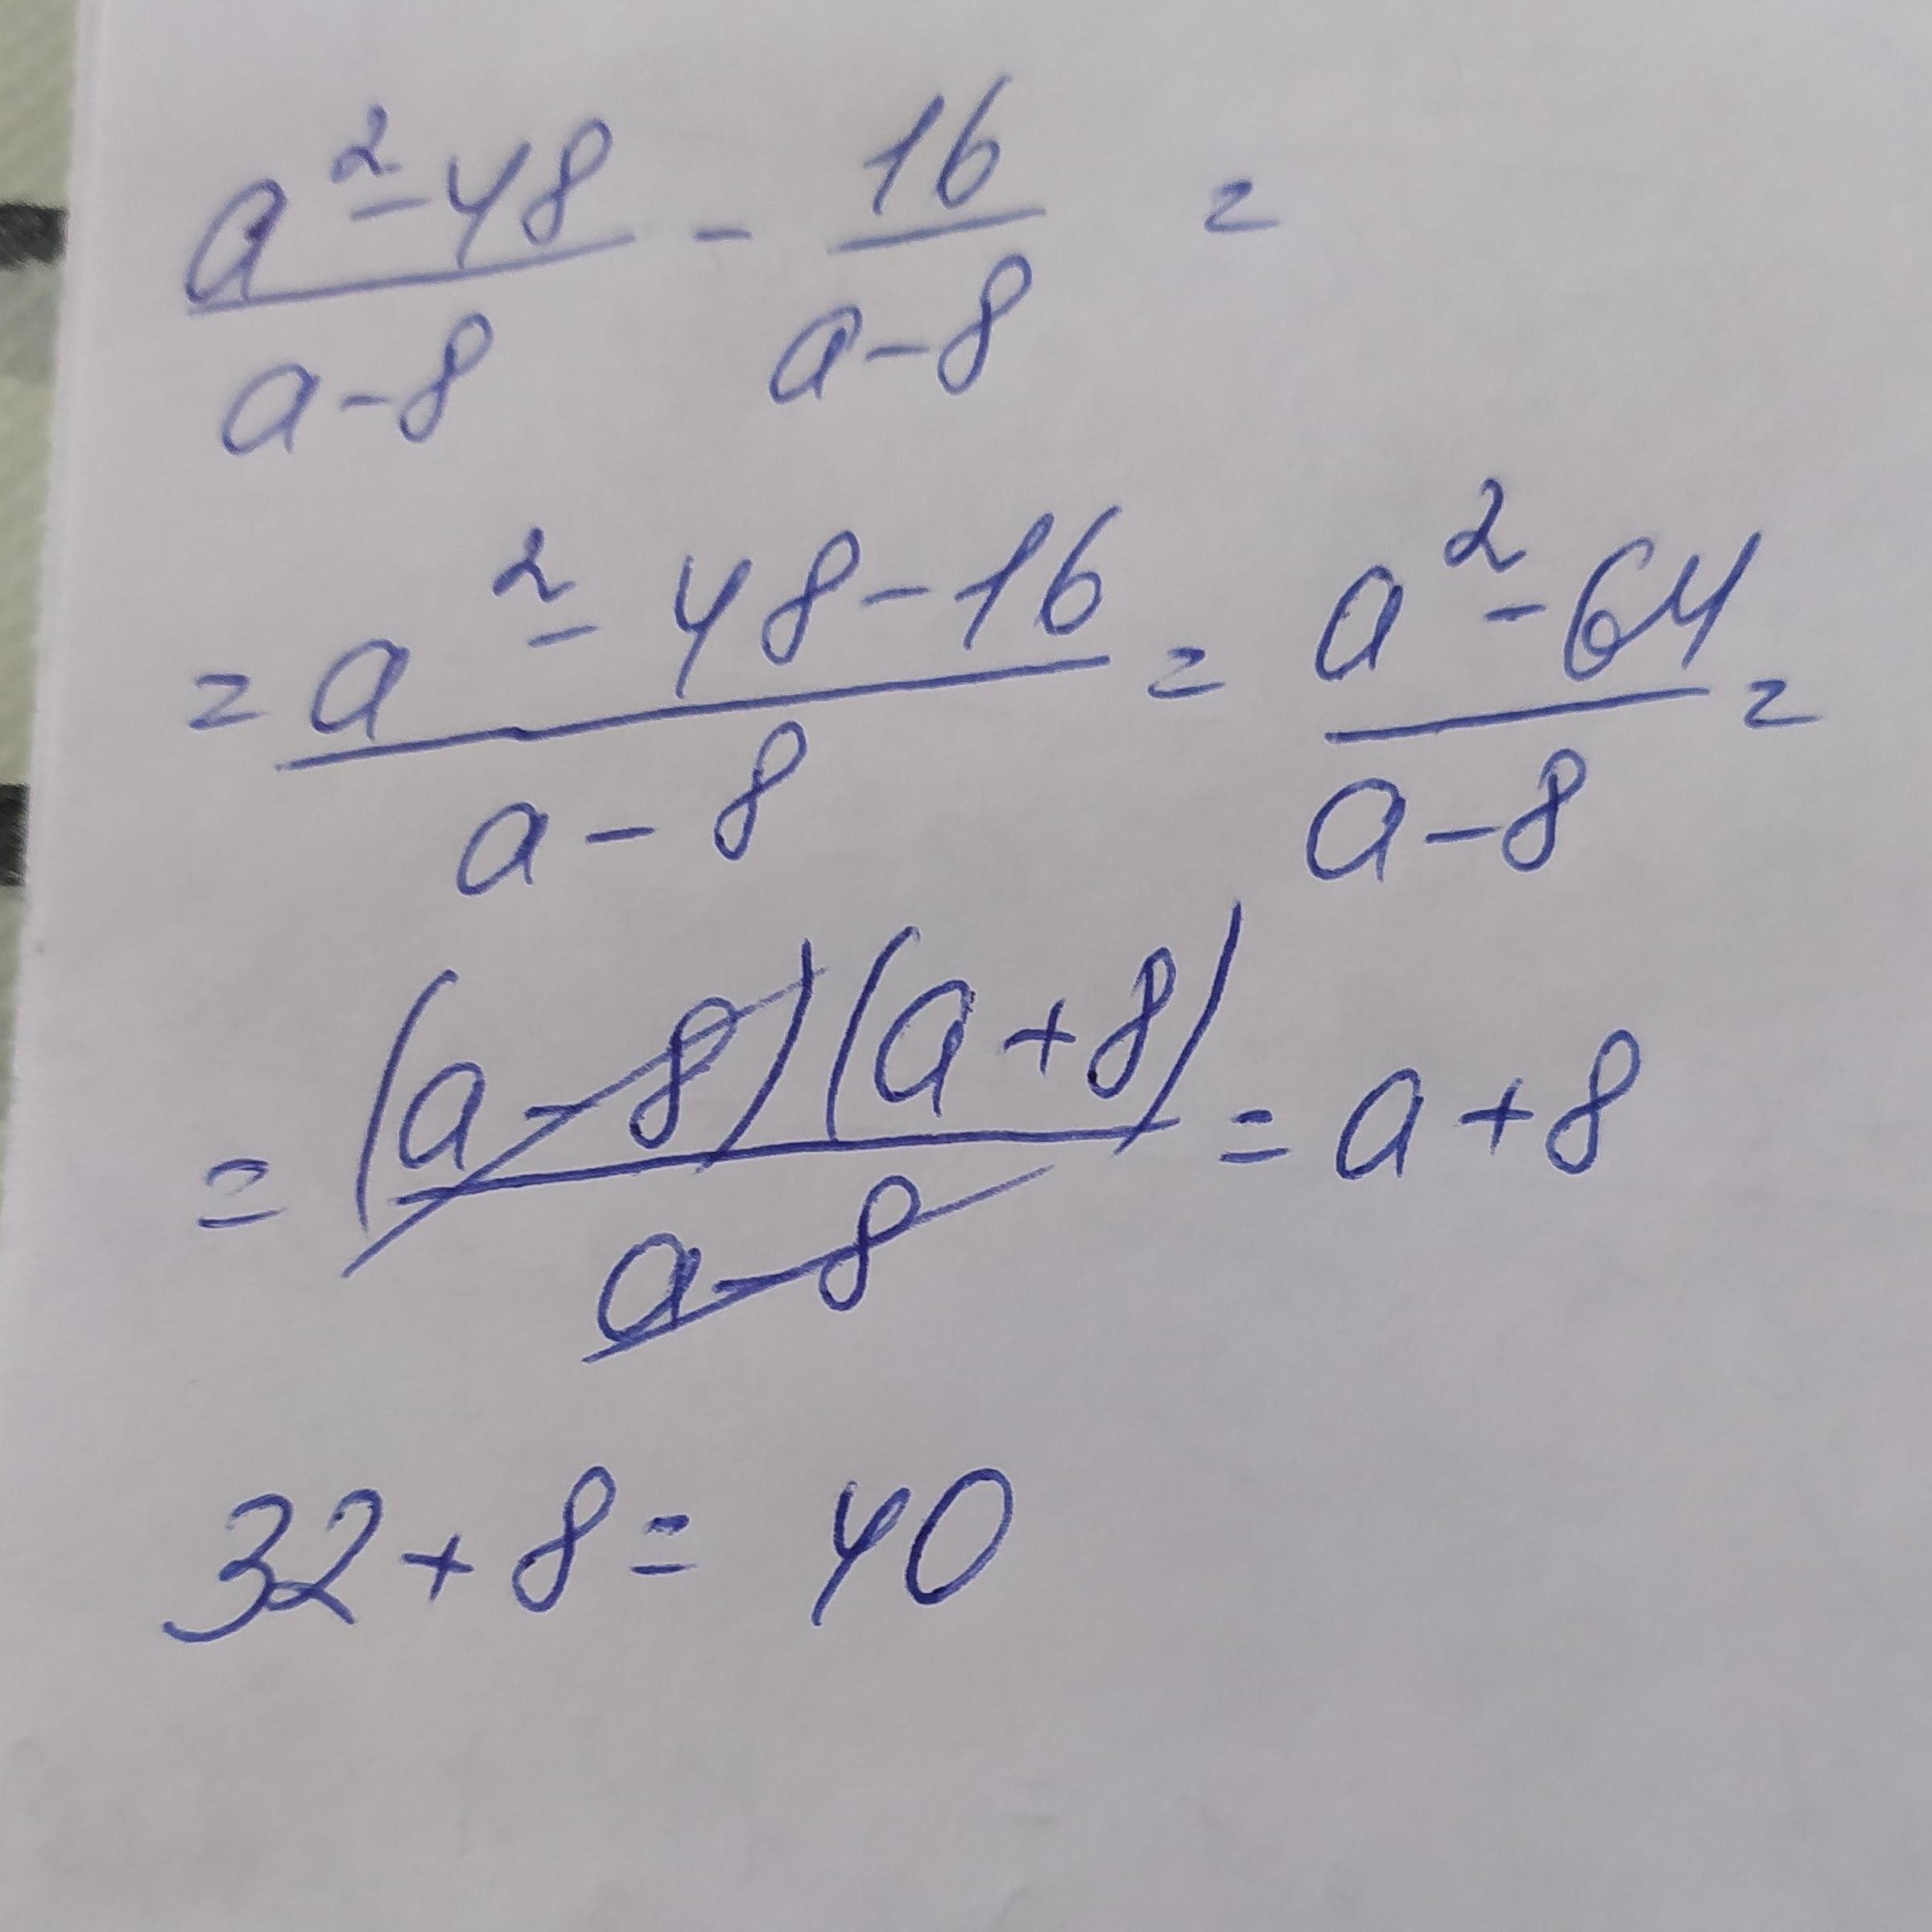 (a² - 48)/(a - 8) - 16/(a - 8) =
= (a² - 48 - 16)/(a - 8) = (a² - 64)/(a - 8) =
= (a - 8)(a + 8)/(a - 8) = a + 8
32 + 8 = 40